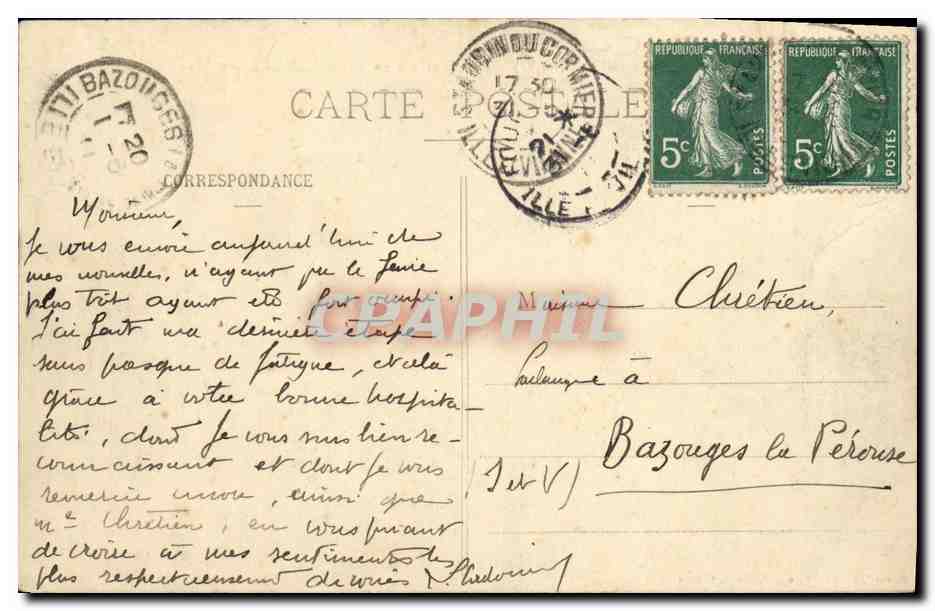 CARTE POSTALE
CORRESPONDANCE
REPUBLIQUE FRANÇAISE
5c
POSTES
REPUBLIQUE FRANÇAISE
5c
POSTES
BAZOUGES
ILLE
ST AUBIN DU CORMIER
17 30
21
ILLE-ET-VILAINE
Monsieur,
Je vous envoie aujourd'hui de
mes nouvelles, n'ayant pu le faire
plus tôt ayant été fort occupé.
J'ai fait ma dernière étape
sans presque de fatigue, et cela
grâce à votre bonne hospita-
lité, dont je vous suis bien re-
connaissant et dont je vous
remercie encore, ainsi que
Me Chrétien, en vous priant
de croire à mes sentiments les
plus respectueusement dévoués
Monsieur Chrétien,
Boulanger à
Bazouges la Pérouse
(I et V)
CPAPHIL